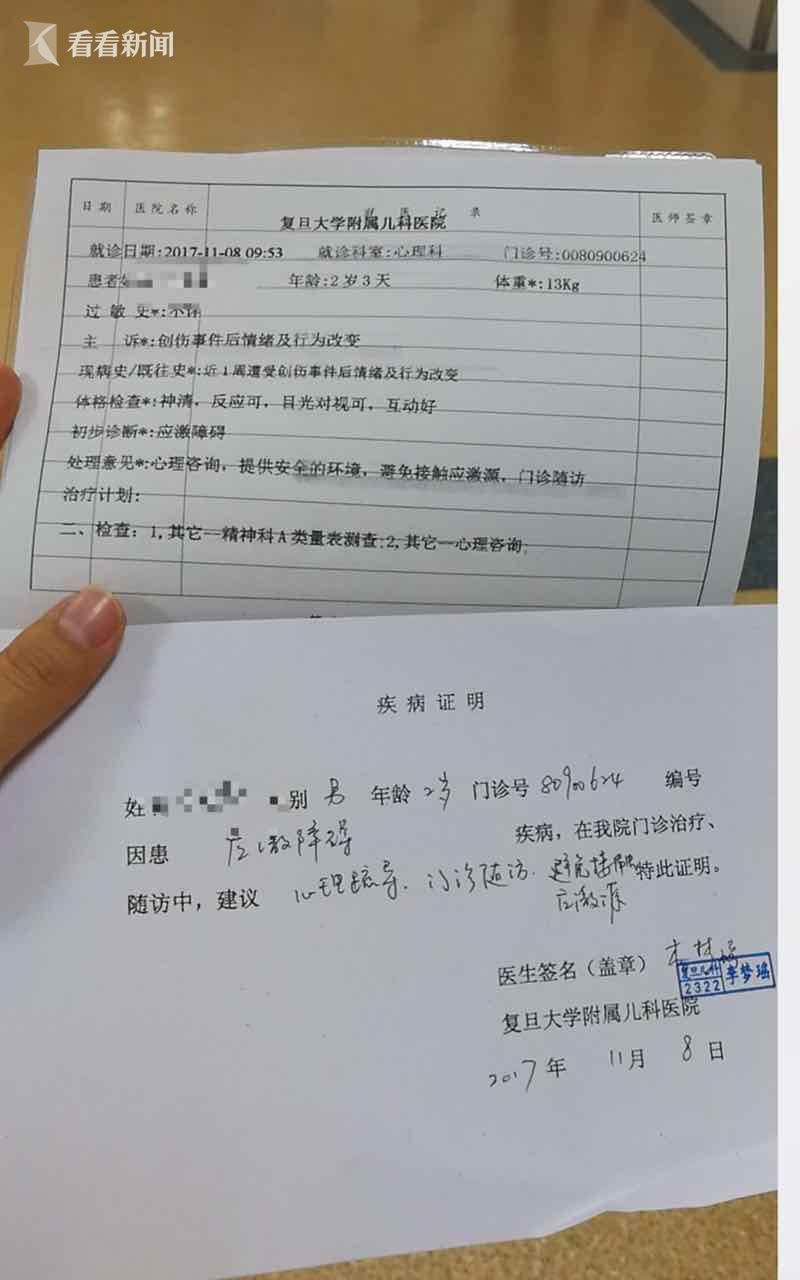 看看新闻
日期 医院名称 记录 医师签章
复旦大学附属儿科医院
就诊日期:2017-11-08 09:53 就诊科室:心理科 门诊号:0080900624
患者 年龄:2岁3天 体重*:13Kg
过敏史*:不详
主 诉*:创伤事件后情绪及行为改变
现病史/既往史*:近1周遭受创伤事件后情绪及行为改变
体格检查*:神清，反应可，目光对视可，互动好
初步诊断*:应激障碍
处理意见*:心理咨询，提供安全的环境，避免接触应激源，门诊随访
治疗计划:
二、检查：1,其它--精神科A类量表测查;2,其它--心理咨询;
疾病证明
姓 别 男 年龄 2岁 门诊号 80900624 编号
因患 应激障碍 疾病，在我院门诊治疗、
随访中，建议 心理疏导、门诊随访、避免接触应激源 特此证明。
医生签名（盖章） 李梦瑶
复旦儿科 2322 李梦瑶
复旦大学附属儿科医院
2017年 11月 8日